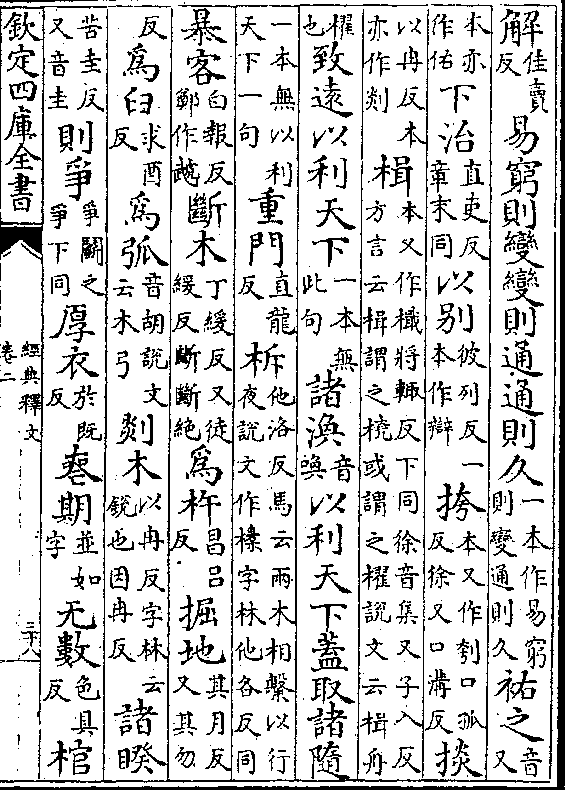 解佳賣反易窮則變變則通通則久一本作易窮則變通則久祐之音又
本亦作佑下治直吏反章末同以别彼列反一本作辯挎本又作刳口孤反徐又口溝反掞
以冉反本亦作剡楫本又作檝將輒反下同徐音集又子入反方言云楫謂之橈或謂之櫂説文云楫舟
櫂也致遠以利天下一本無此句諸渙音喚以利天下蓋取諸隨
一本無以利天下一句重門直龍反柝他洛反馬云兩木相擊以行夜説文作㯓字林他各反同
暴客白報反鄭作虣斷木丁緩反又徒緩反斷斷絶爲杵昌吕反掘地其月反又其勿
反爲臼求酉反爲弧音胡説文云木弓剡木以冉反字林云鋭也因冉反諸睽
苦圭反又音圭則爭爭鬭之爭下同厚衣於既反䘮期並如字无數色具反棺
欽定四庫全書
經典釋文
卷二
三十八